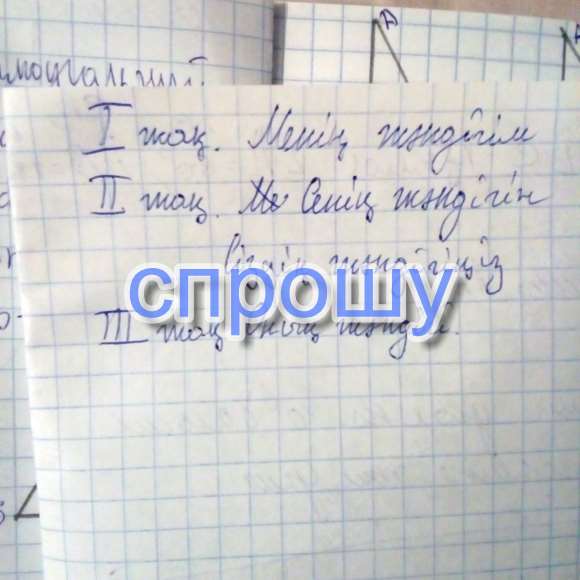 А
I жақ. Менің жәндігім
II жақ. Ме Сенің жәндігің
Сіздің жәндігіңіз
спрошу
III жақ Оның жәндігі.